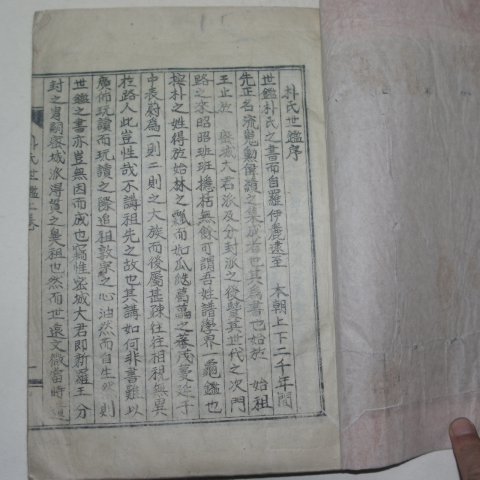 朴氏世鑑序
世鑑朴氏之書而自羅伊麗遠至 本朝上下二千年間
先正名流嵬勳偉蹟之集成者也其爲書也始於 始祖
王止於 密城大君派及分封派之後贊其世代之次門
路之來昭昭班班摠括無餘可謂吾姓譜學界一龜鑑也
粤朴之姓得於始林之瓢而如瓜瓞葛藟之蕃茂蔓延于
中表蔚爲一則二則之大族而後屬甚疎往往相視無異
於路人此豈性哉不講祖先之故也其講如何非書難以
廣佈玩讀而玩讀之際追祖敦宗之心油然而自生
則
世鑑之書亦豈無因而成也竊惟密城大君卽新羅王分
封之胄嗣密城派得貫之鼻祖也然而世遠文微當時
朴氏世鑑 卷
一